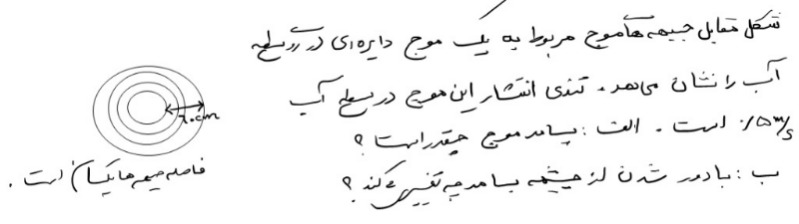 شکل مقابل جبهه های موج مربوط به یک موج دایره ای در سطح
آب را نشان می دهد. تندی انتشار این موج در سطح آب
۰/۵ m/s است. الف: بسامد موج چقدر است؟
ب: با دور شدن از چشمه بسامد چه تغییری می کند؟
۲۰cm
فاصله جبهه ها یکسان است.